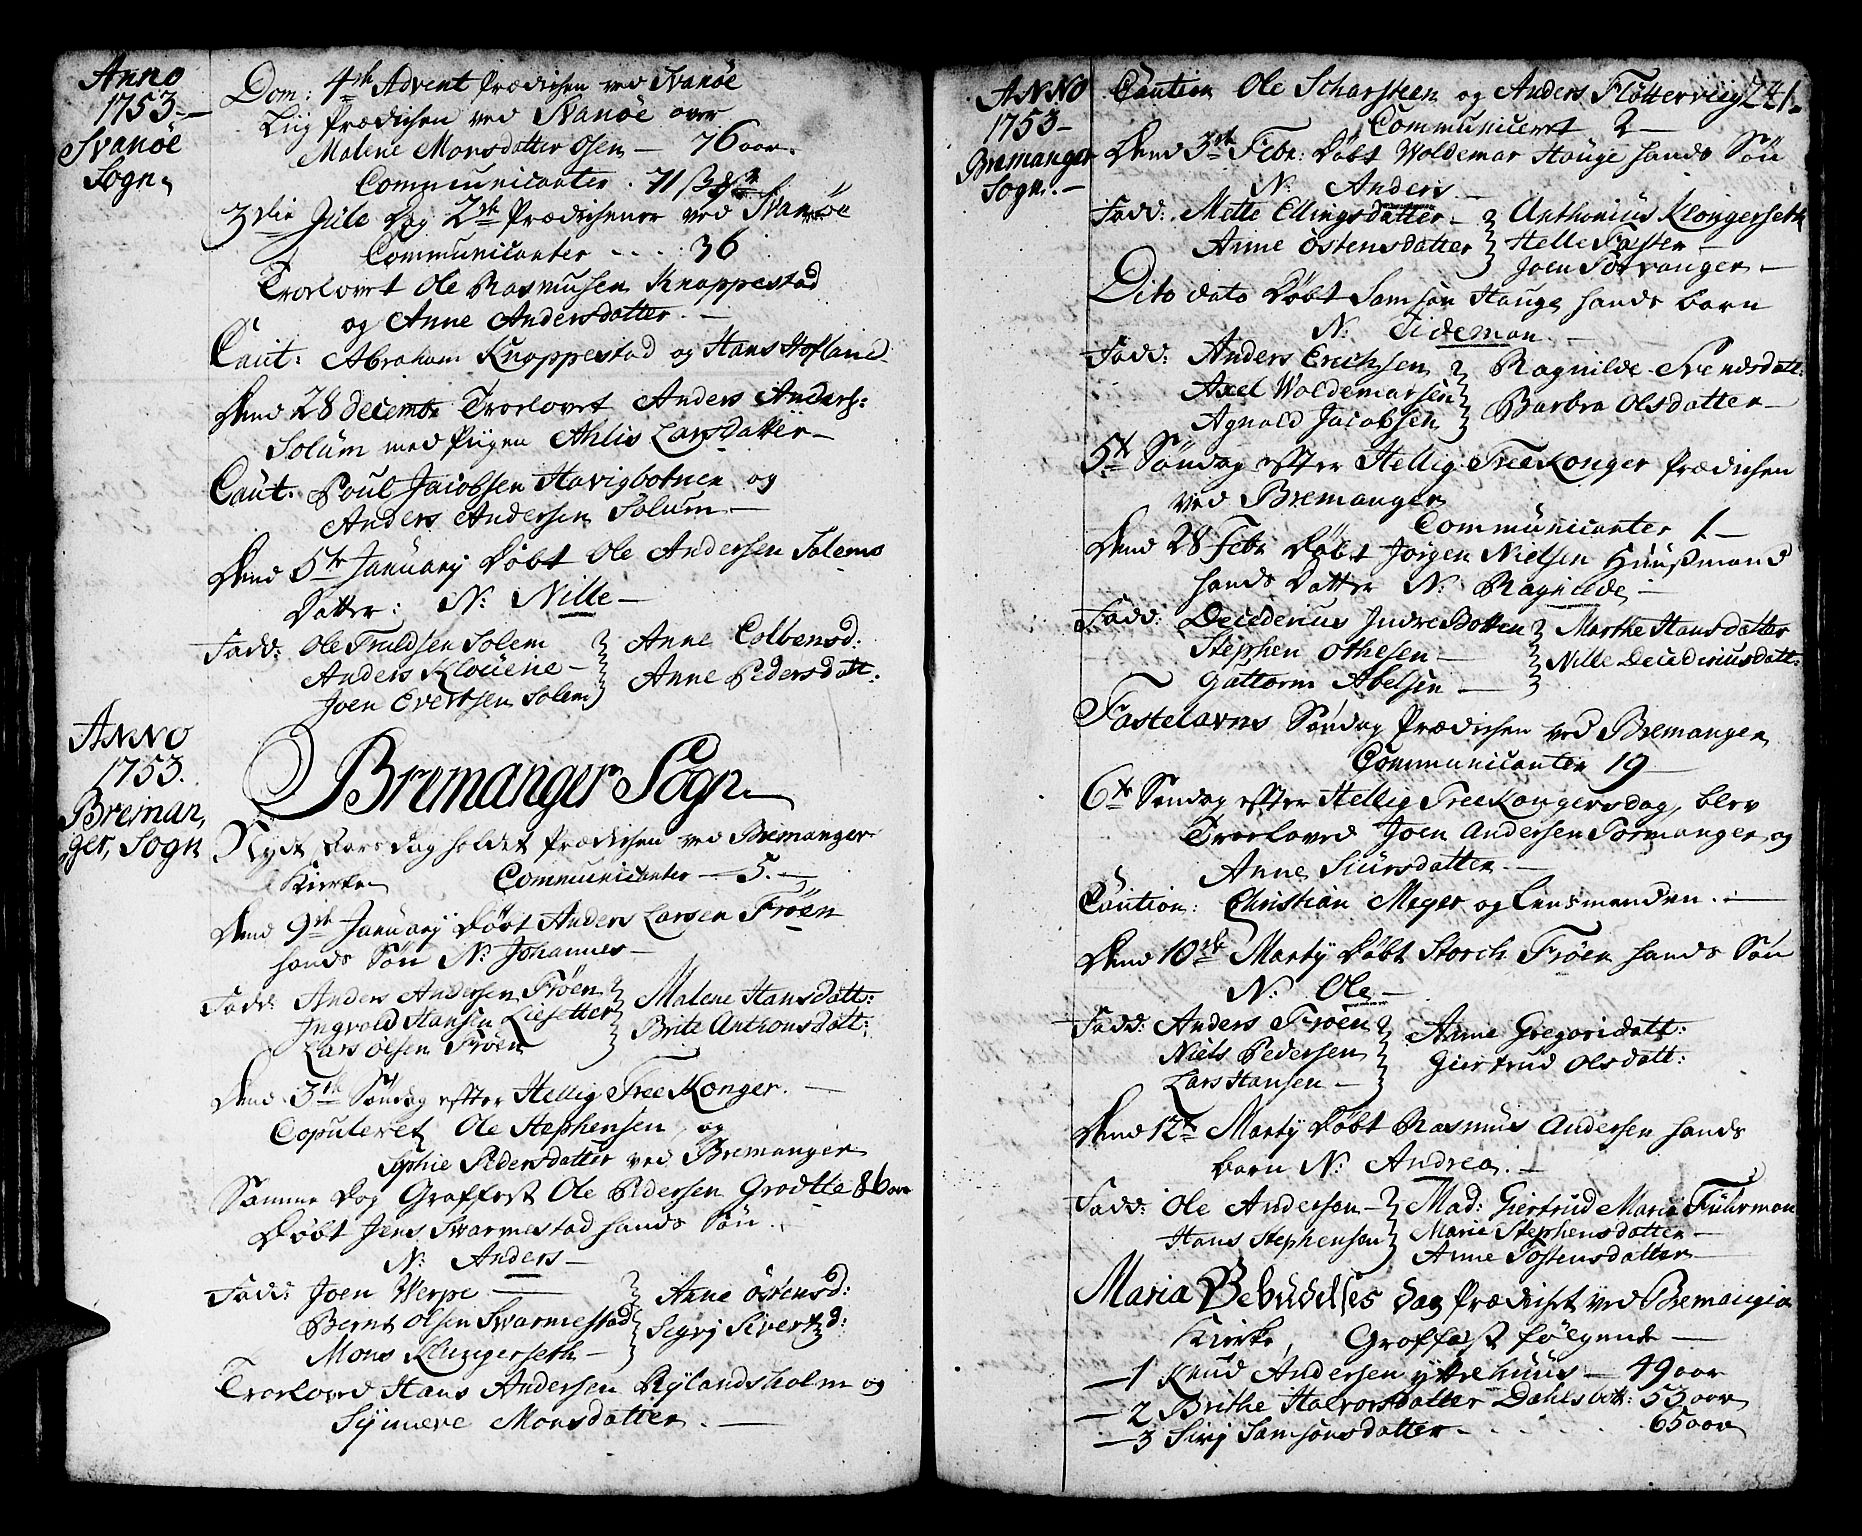 Anno
1753.
Svanöe
Sogn.
Dom: 4de Advent Prædichen ved Svanöe
Liig Prædichen ved Svanöe over
Malene Monsdatter Osen — 76 aar.
Communicanter . 71
3die Jule Dag 2de Prædichener ved Svanöe
Communicanter - - - 36
Trolovet Ole Rasmusen Knappestad
og Anne Andersdatter. —
Caut: Abraham Knappestad og Hans Hofland
Dend 28 decembr Trolovet Anders Anders:
Solum med Piigen Ahlis Larsdatter —
Caut: Poul Jacobsen Havigbotnen og
Anders Andersen Solum —
Dend 5te January Döbt Ole Andersen Solems
Datter: N: Nille —
Fadd: Ole Truldsen Solem
Anders Klouene —
Joen Evertsen Solem
Anne Colbensd:
Anne Pedersdatt:
ANNO
1753.
Breman,
ger, Sogn
Bremanger Sogn
Nyt Aars dag holdet Prædichen ved Bremanger
Kierke Communicanter — 5. —
Dend 9de January Döbt Anders Larsen Fröen
hands Sön N: Johannes —
Fadd: Anders Andersen Fröen
Ingvold Hansen Liesetter
Lars Olsen Fröen
Malene Hansdatt:
Brite Anthonsdatt:
Dend 3de Söndag efter Hellig Tree Konger. —
Copuleret Ole Stephensen og
Sophie Pedersdatter ved Bremanger
Samme Dag Graffest Ole Pedersen Grodtte 86 aar
Döbt Jens Svarmestad hands Sön.
N: Anders —
Fadd: Joen Verpe —
Bernt Olsen Svarmestad
Mons Klungerseth —
Anne Östensd:
Segrj Sivertsd:
Troloved Hans Andersen Rylandsholm og
Synneve Monsdatter. —
ANNO
1753 —
Bremanger
Sogn. —
Caution Ole Scharsteen og Anders Flöttervig 241.
Communiceret 2 —
Dend 3de Febr: Döbt Woldemar Hauge hands Sön
N: Anders —
Fadd: Mette Ellingsdatter —
Anne Östensdatter
Anthonius Klongerseth
Helle Faster —
Joen Sörvanger —
Dito dato Döbt Samson Hauge hands barn
N: Tideman —
Fadd: Anders Erichsen
Axel Woldemarsen
Agnald Jacobsen
Ragnilde Svendsdatt:
Barbra Olsdatter —
5te Söndag efter Hellig Tree Konger Prædichen
ved Bremanger
Communicanter 1 —
Dend 28 Febr Döbt Jörgen Nielsen Huusmand
hands Datter N: Ragnilde —
Fadd: Decederius Indrebotten
Stephen Othesen —
Guttorm Abelsen —
Marthe Hansdatter
Nille Decederiusdatt:
Fastelavns Söndag Prædichen ved Bremanger
Communicanter 19 —
6te Söndag efter Hellig Tree Kongersdag, blev
Troloved Joen Andersen Sormanger og
Anne Siursdatter —
Caution: Christian Meyer og Lensmanden. —
Dend 10de Marty Döbt Storch Fröen hands Sön
N: Ole —
Fadd: Anders Fröen
Niels Pedersen
Lars Hansen —
Anne Gregoridatt:
Giertrud Olsdatt:
Dend 12te Marty Döbt Rasmus Andersen hands
barn N: Andrea. —
Fadd: Ole Andersen —
Hans Stephensen
Mad: Giertrud Maria Fuhrman
Marie Stephensdatter —
Anne Tostensdatter
Maria Bebudelses Dag Prædichet ved Bremanger
Kierke, Graffest fölgende —
— 1 Knud Andersen Yttrehuus — 49 aar
— 2 Brithe Halvorsdatter Dahlsbtt: 53 aar
— 3 Sirj Samsonsdatter - . . . . . 65 aar